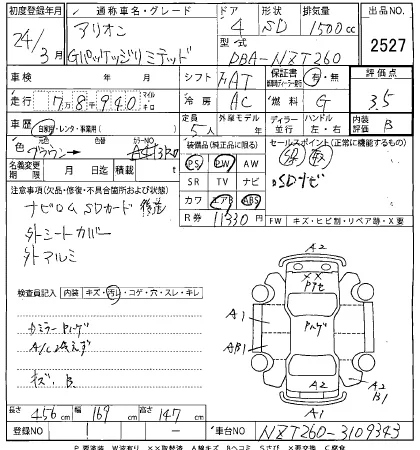 初度登録年月 通称車名・グレード ドア 形状 排気量 出品NO.
24年 3月 アリオン 4 SD 1500cc
Gパッケージリミテッド 型式 DBA-NZT260 2527
車検 シフト FAT 保証書 有・無 評価点
走行 78940 マイル キロ 冷房 AC 燃料 G 3.5
車歴 自家用・レンタ・事業用 定員 5人 外装モデル ディーラー 並行 ハンドル 左・右 内装評価 B
色 ブラウン 色替 カラーNO. 装備品(純正品に限る) セールスポイント(正常に機能するもの)
名義変更期限 月 日 積載 月 日 PS PW AW
SR TV ナビ SDナビ
注意事項(欠品・修復・不具合箇所および状態) カワ エアB ABS
ナビROM SDカード 後送 R券 11330円 FW キズ・ヒビ割・リペア跡・X要
外シートカバー
外アルミ
検査員記入 内装 キズ・汚レ・コゲ・穴・スレ・キレ
A2
XX
A1
AB1
キズ、B A2 A2 B1
長さ 456cm 幅 169cm 高さ 147cm A1
登録NO 車台NO NZT260-3109343
P 要塗装 W波有り XX取替済 A線キズ Bヘコミ Sさび X要交換 C腐食